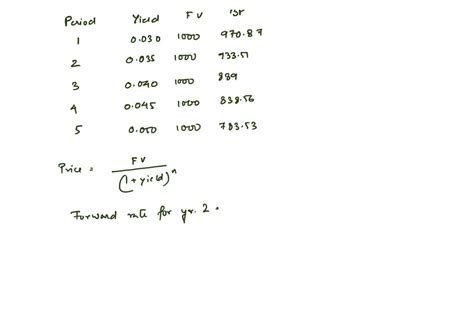 Period Yield FV BP
1 0.030 1000 970.87
2 0.035 1000 933.51
3 0.040 1000 889
4 0.045 1000 838.56
5 0.050 1000 783.53
Price = FV / (1 + yield)^n
Forward rate for yr. 2 =